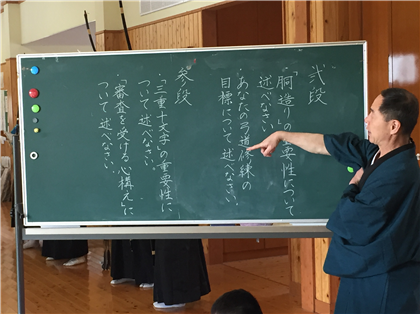 弐段
「胴造り」の重要性について
述べなさい。
・あなたの弓道修練の
目標について述べなさい。
参段
・「三重十文字」の重要性に
ついて述べなさい。
・「審査を受ける心構え」に
ついて述べなさい。